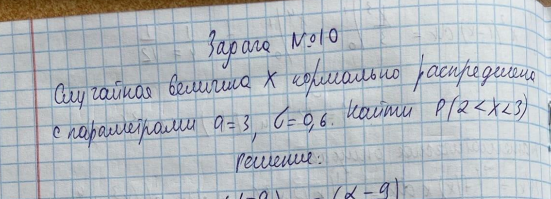 Задача №10
Случайная величина X нормально распределена
с параметрами a=3, σ=0,6. Найти P(2<X<3)
Решение: